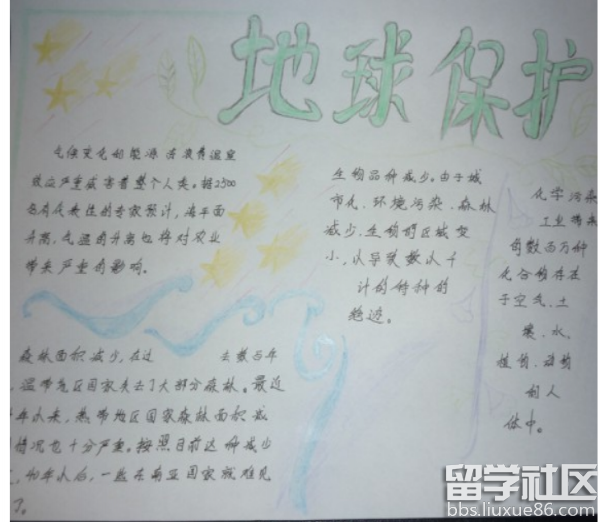 地球保护
气候变化和能源浪费温室
效应严重威害着整个人类。据2500
名有代表性的专家预计，海平面
升高，气温的升高也将对农业
带来严重的影响。
生物品种减少。由于城
市化、环境污染、森林
减少。生物的区域变
小，从导致数以千
计的物种的
绝迹。
化学污染
工业带来
的数百万种
化合物存在
于空气、土
壤、水，
植物、动物
和人
体中。
森林面积减少，在过 去数百年
温带地区国家失去了大部分森林。最近
年以来，热带地区国家森林面积减
情况也十分严重。按照目前这种减少
40年以后，一些东南亚国家就难见
了。
留学社区
bbs.liuxue86.com